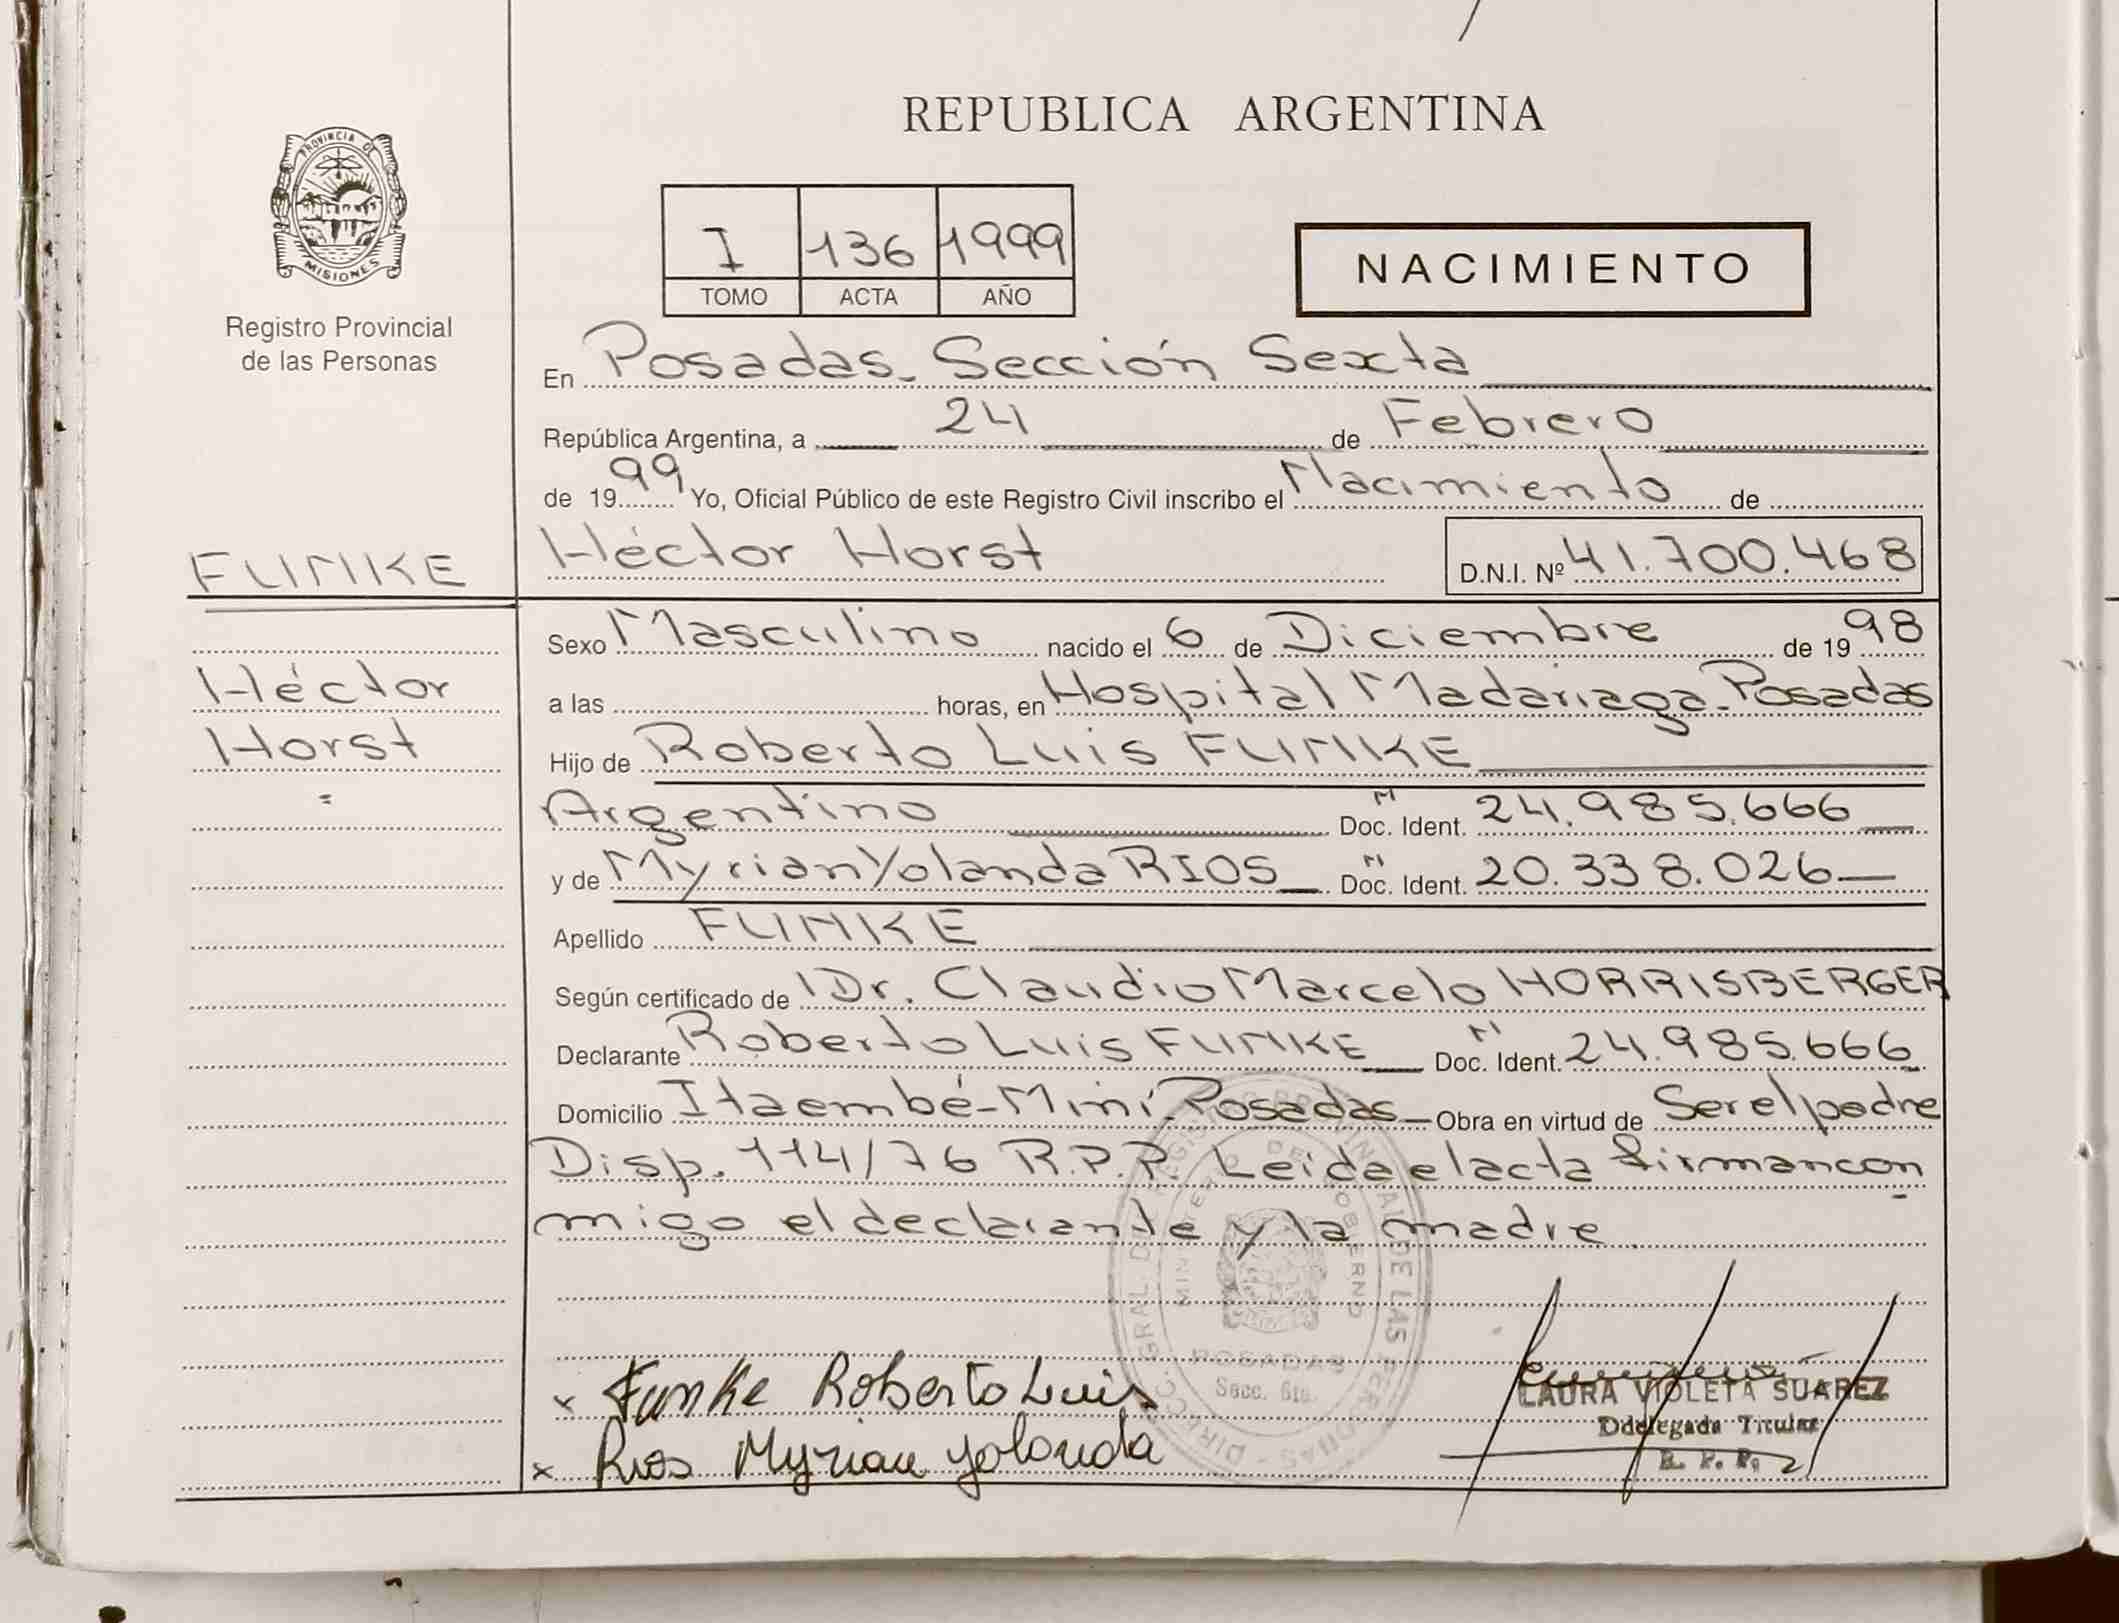 REPUBLICA ARGENTINA
PROVINCIA DE
MISIONES
Registro Provincial
de las Personas
I 136 1999
TOMO ACTA AÑO
NACIMIENTO
En Posadas - Sección Sexta
República Argentina, a 24 de Febrero
de 1999 Yo, Oficial Público de este Registro Civil inscribo el Nacimiento de
FUNKE
Héctor Horst D.N.I. Nº 41.700.468
Héctor
Horst
=
Sexo Masculino nacido el 6 de Diciembre de 1998
a las horas, en Hospital Madariaga - Posadas
Hijo de Roberto Luis FUNKE
Argentino N Doc. Ident. 24.985.666
y de Myrian Yolanda RIOS N Doc. Ident. 20.338.026
Apellido FUNKE
Según certificado de Dr. Claudio Marcelo HORRISBERGER
Declarante Roberto Luis FUNKE N Doc. Ident. 24.985.666
Domicilio Itaembé-Miní-Posadas Obra en virtud de Ser el padre
Disp. 114/76 R.P.P. Leida el acta firman con
migo el declarante y la madre
DIRECC. GRAL. DEL REGISTRO PROVINCIAL DE LAS PERSONAS
MINISTERIO DE GOBIERNO
POSADAS
Secc. 6ta.
x Funke Roberto Luis
x Rios Myrian Yolanda
LAURA VIOLETA SUAREZ
Ddelegada Titular
R. P. P.